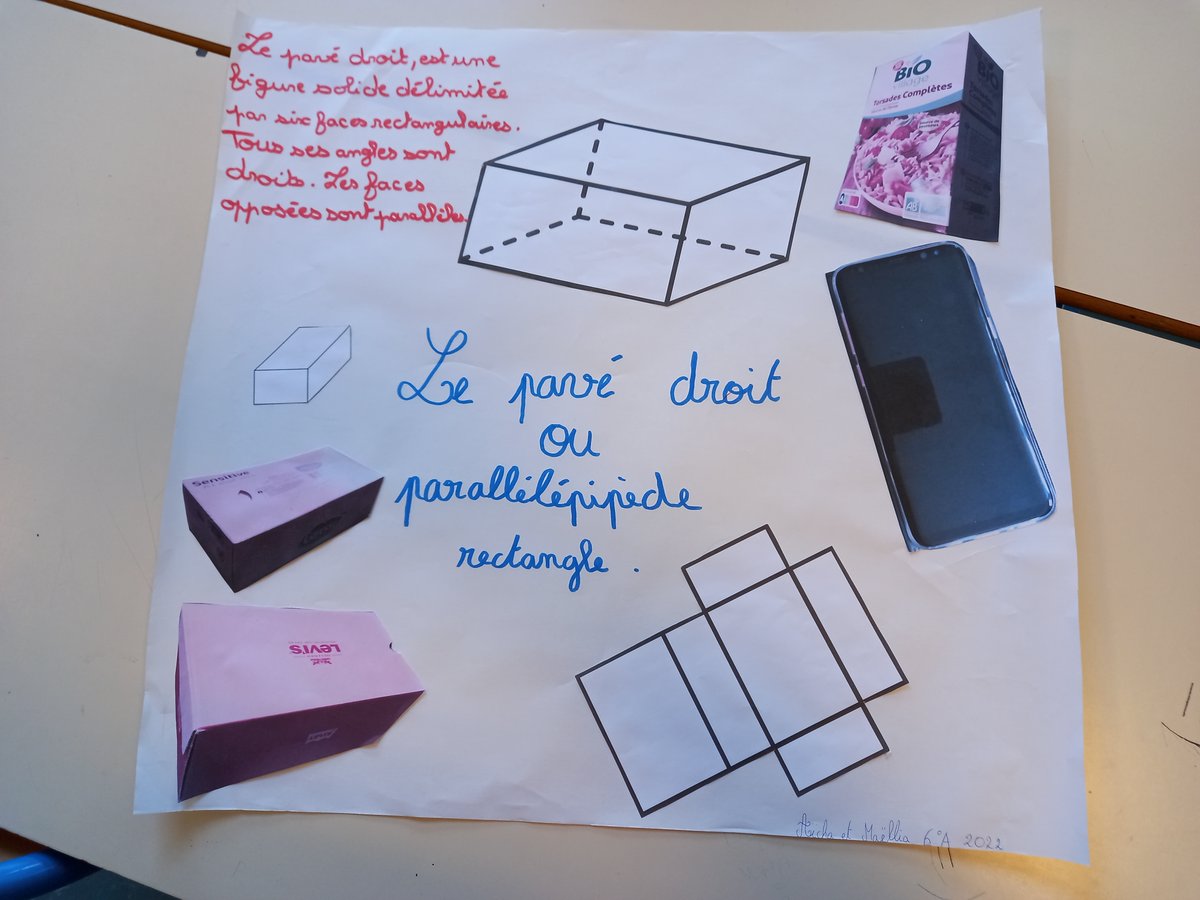 Le pavé droit, est une
figure solide délimitée
par six faces rectangulaires.
Tous ses angles sont
droits. Les faces
opposées sont parallèles.
BIO
village
Torsades Complètes
BIO
AB
Le pavé droit
ou
parallélépipède
rectangle.
Sensitive
LEVI'S
et Maëllia 6°A 2022